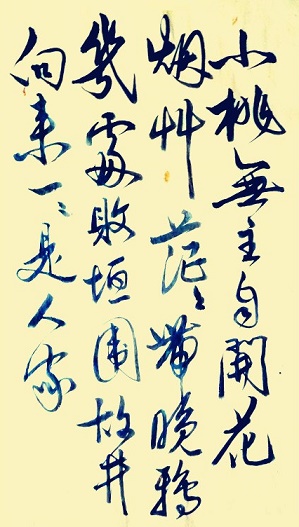 小桃無主自開花
烟艸茫〻帶晚鴉
幾處敗垣圍故井
向来一〻是人家